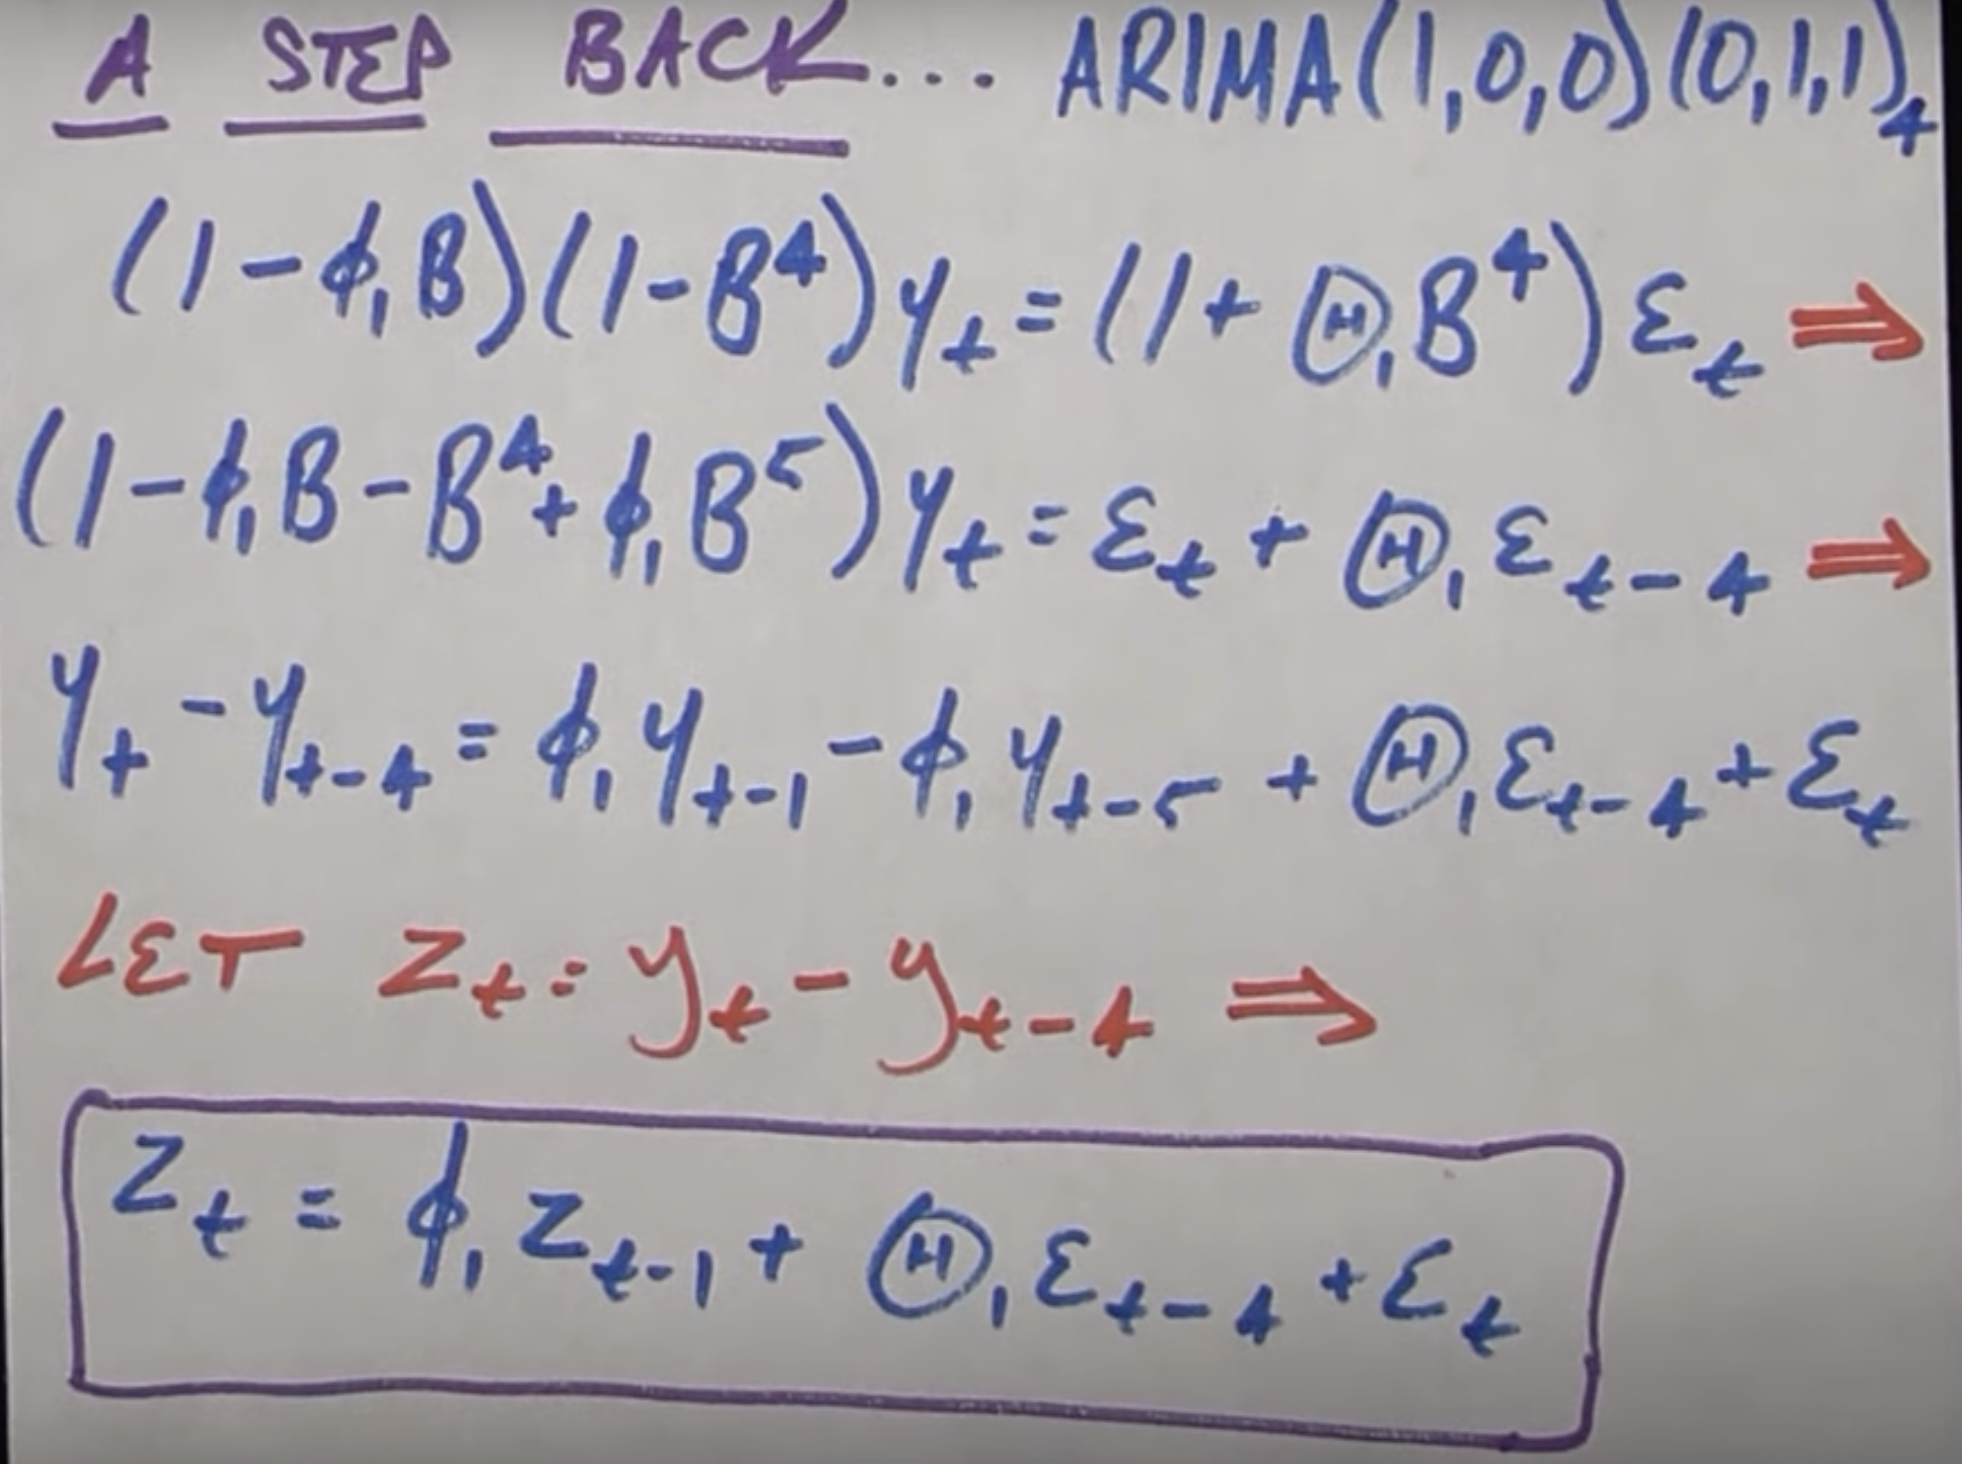 A STEP BACK... ARIMA(1,0,0)(0,1,1)₄
(1-ϕ₁B)(1-B⁴)y_t = (1+Θ₁B⁴)ε_t ⇒
(1-ϕ₁B-B⁴+ϕ₁B⁵)y_t = ε_t + Θ₁ε_{t-4} ⇒
y_t - y_{t-4} = ϕ₁y_{t-1} - ϕ₁y_{t-5} + Θ₁ε_{t-4} + ε_t
LET z_t = y_t - y_{t-4} ⇒
z_t = ϕ₁z_{t-1} + Θ₁ε_{t-4} + ε_t